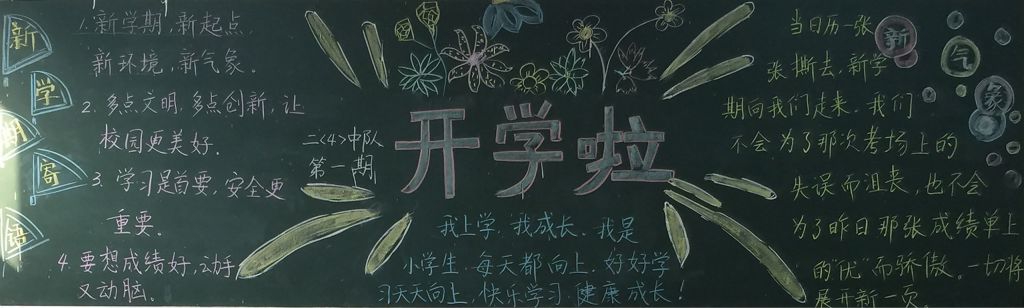 新学期寄语
1.新学期,新起点,
新环境,新气象。
2.多点文明,多点创新,让
校园更美好.
3.学习是首要,安全更
重要。
4.要想成绩好,动手
又动脑。
二<4>中队
第一期
开学啦
我上学.我成长.我是
小学生.每天都向上.好好学
习天天向上.快乐学习.健康成长!
新气象
当日历一张
张撕去,新学
期向我们走来.我们
不会为了那次考场上的
失误而沮丧,也不会
为了昨日那张成绩单上
的"优"而骄傲。一切将
展开新一页